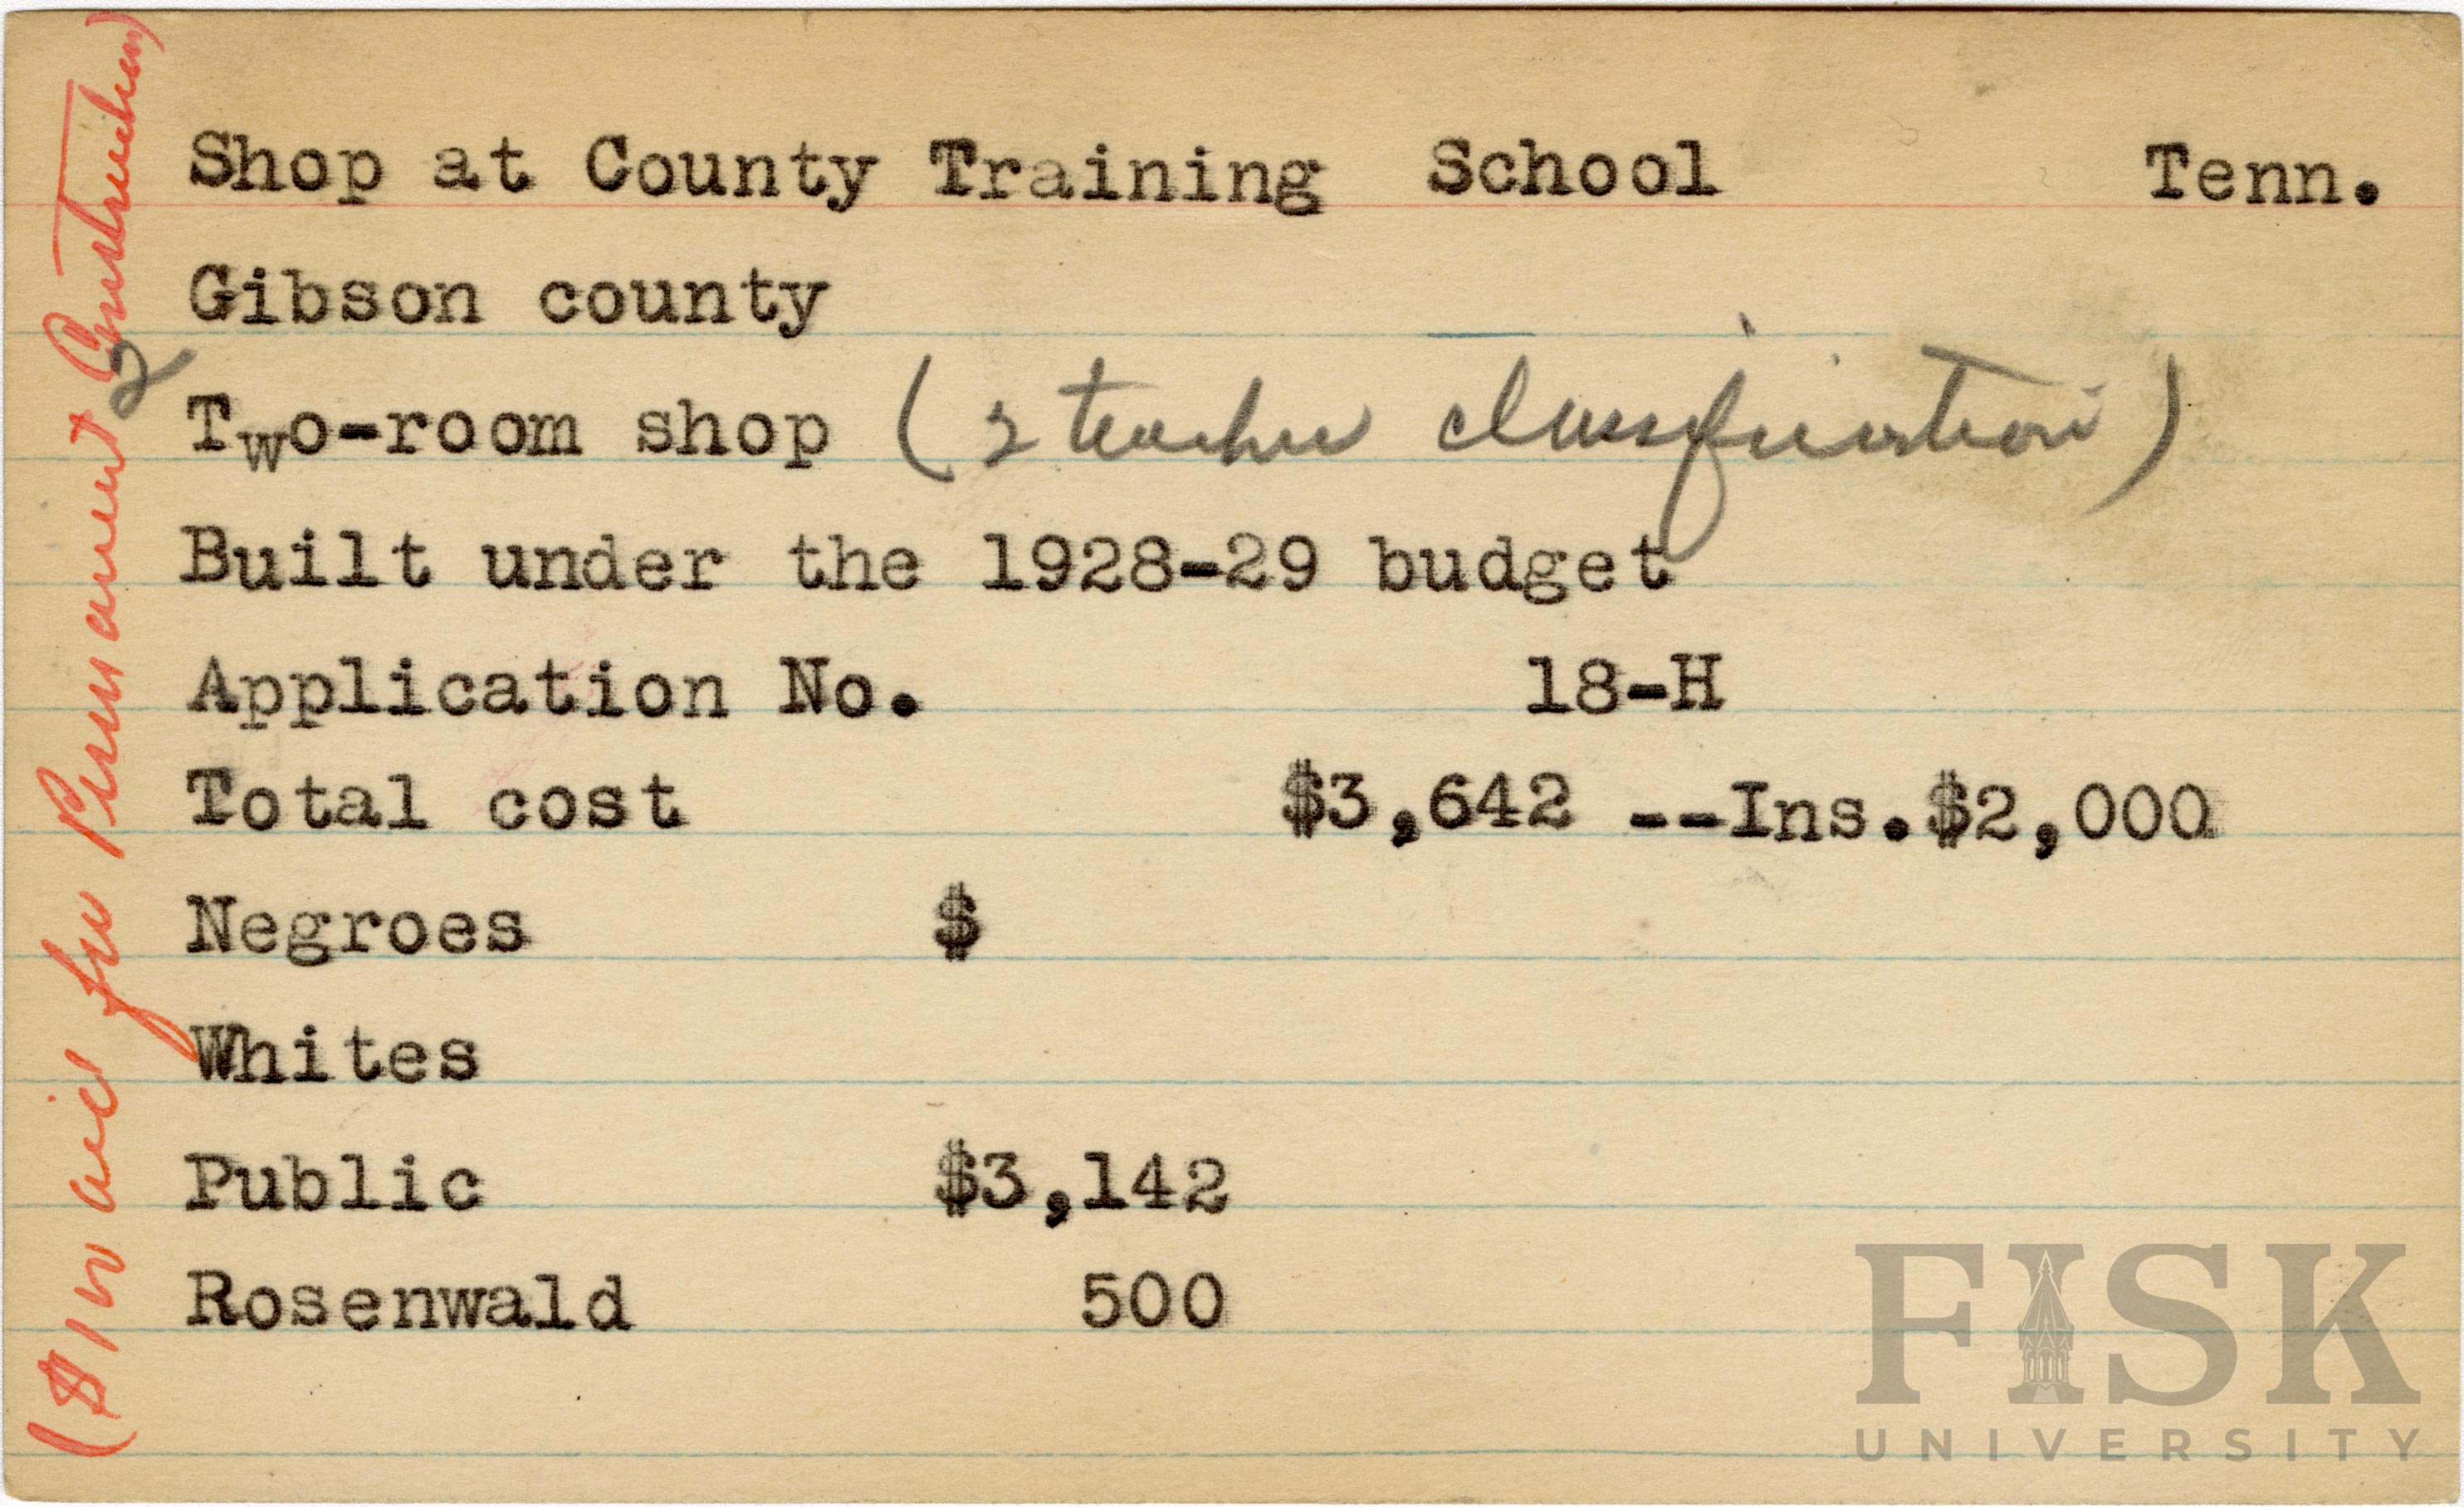 Shop at County Training School Tenn.
Gibson county
2
Two-room shop ( 2 teacher classification )
Built under the 1928-29 budget
Application No. 18-H
Total cost $3,642 --Ins.$2,000
Negroes $
Whites
Public $3,142
Rosenwald 500
aid for Permanent Construction)
FISK
UNIVERSITY